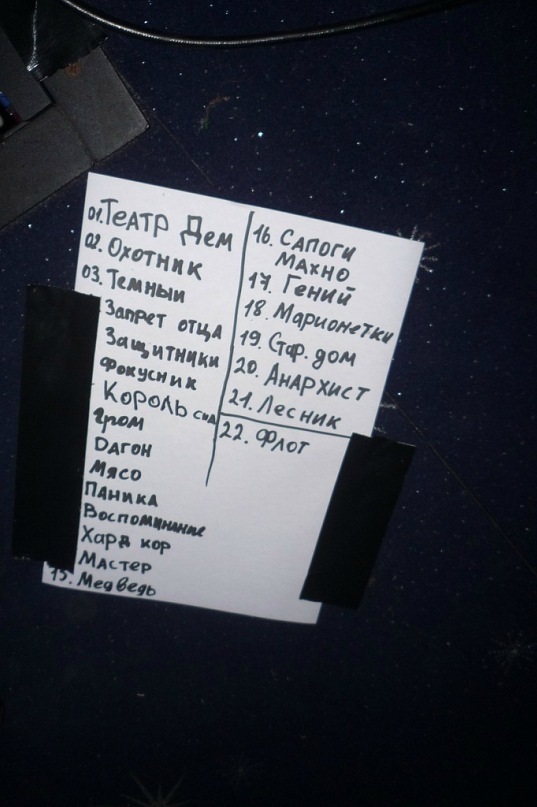 01. Театр Дем
02. Охотник
03. Темный
Запрет отца
Защитники
Фокусник
Король
Гром
Dагон
Мясо
Паника
Воспоминание
Хард кор
Мастер
15. Медведь
16. Сапоги
Махно
17. Гений
18. Марионетки
19. Стар. дом
20. Анархист
21. Лесник
22. Флот